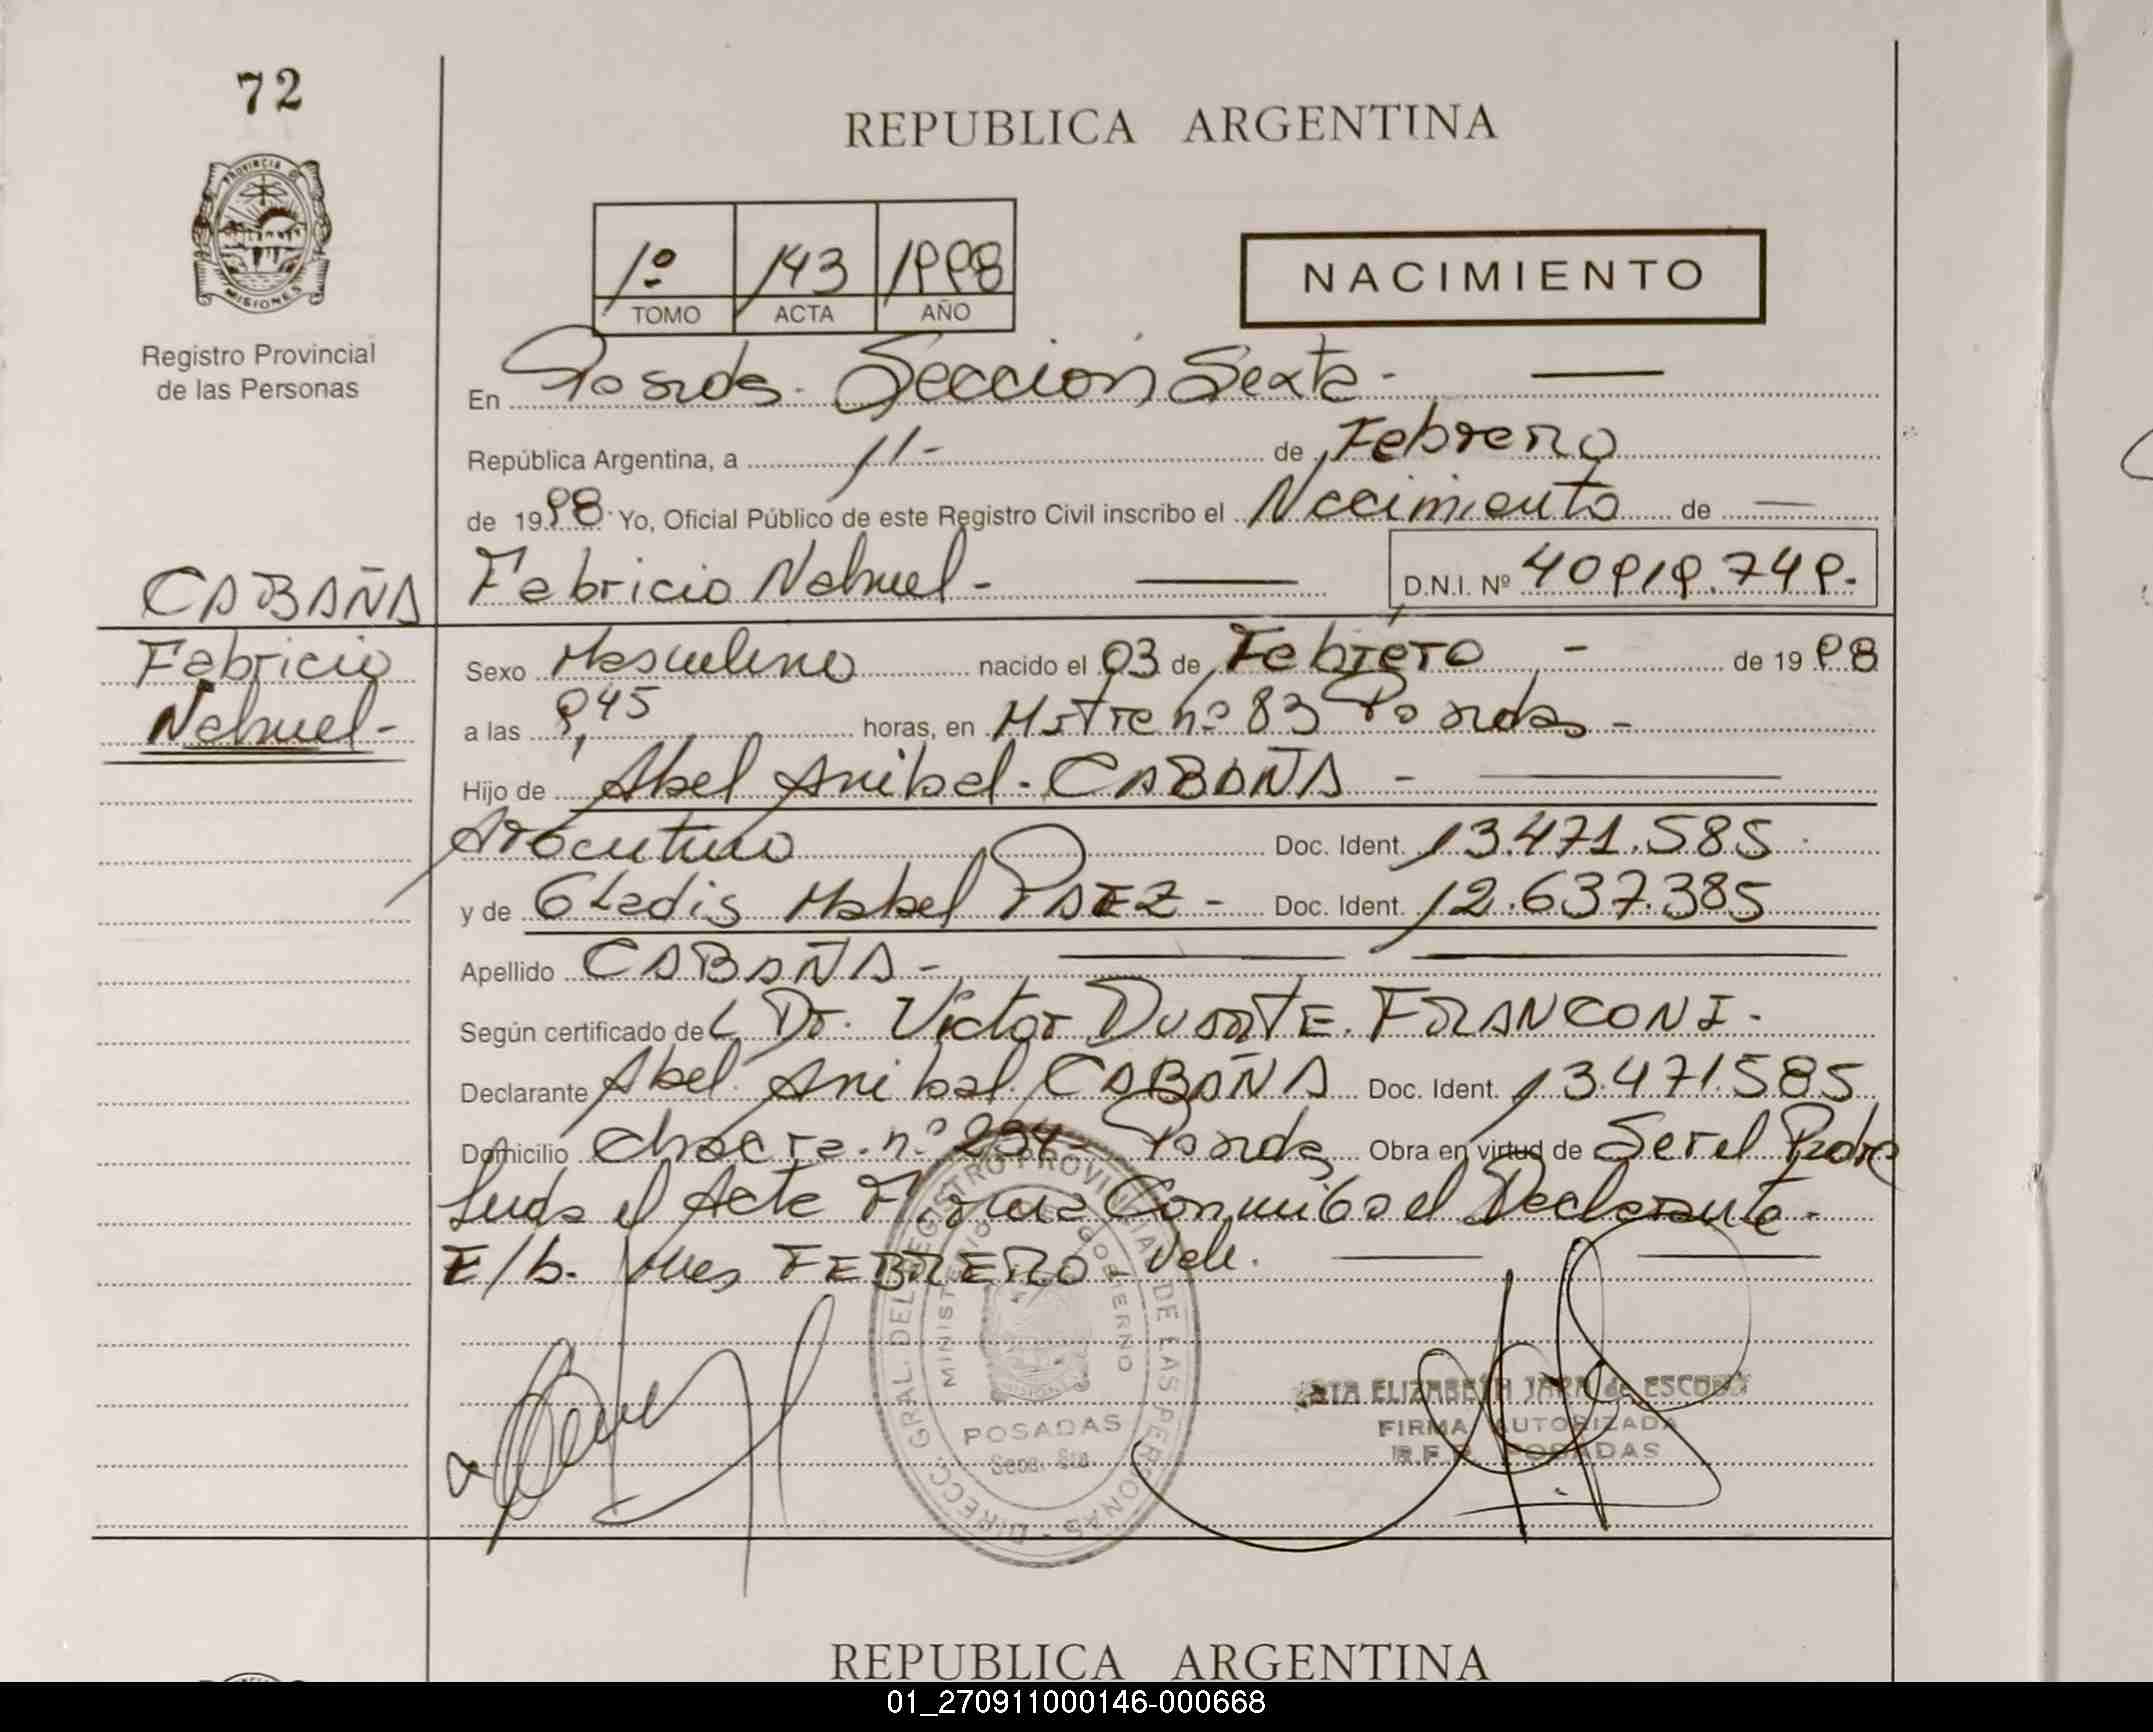 72
REPUBLICA ARGENTINA
PROVINCIA DE
MISIONES
Registro Provincial
de las Personas
1º 143 1998
TOMO ACTA AÑO
NACIMIENTO
En Posadas. Sección Sexta -
República Argentina, a 11- de Febrero
de 1998 Yo, Oficial Público de este Registro Civil inscribo el Nacimiento de —
CABAÑA
Fabricio Nahuel - D.N.I. Nº 40919.749.-
Fabricio
Nahuel-
Sexo Masculino nacido el 03 de Febrero - de 1998
a las 9,45 horas, en Mitre nº 83 Posadas -
Hijo de Abel Anibal - CABAÑA -
Argentino Doc. Ident. 13.471.585
y de Gladis Mabel PAEZ - Doc. Ident. 12.637.385
Apellido CABAÑA -
Según certificado del Dr. Victor Duarte. FRANCONI -
Declarante Abel Anibal CABAÑA Doc. Ident. 13.471.585
Domicilio Chacra. nº 234- Posadas Obra en virtud de Ser el Padre
Leida el Acta Firma Conmigo el Declarante -
E/b. Mes FEBRERO - Vale.
DIRECC. GRAL. DEL REGISTRO PROVINCIAL DE LAS PERSONAS
MINISTERIO DE GOBIERNO
POSADAS
Secc. 6ta.
ELIZABETH JARA de ESCOBAR
FIRMA AUTORIZADA
R.P.P. POSADAS
REPUBLICA ARGENTINA
01_270911000146-000668